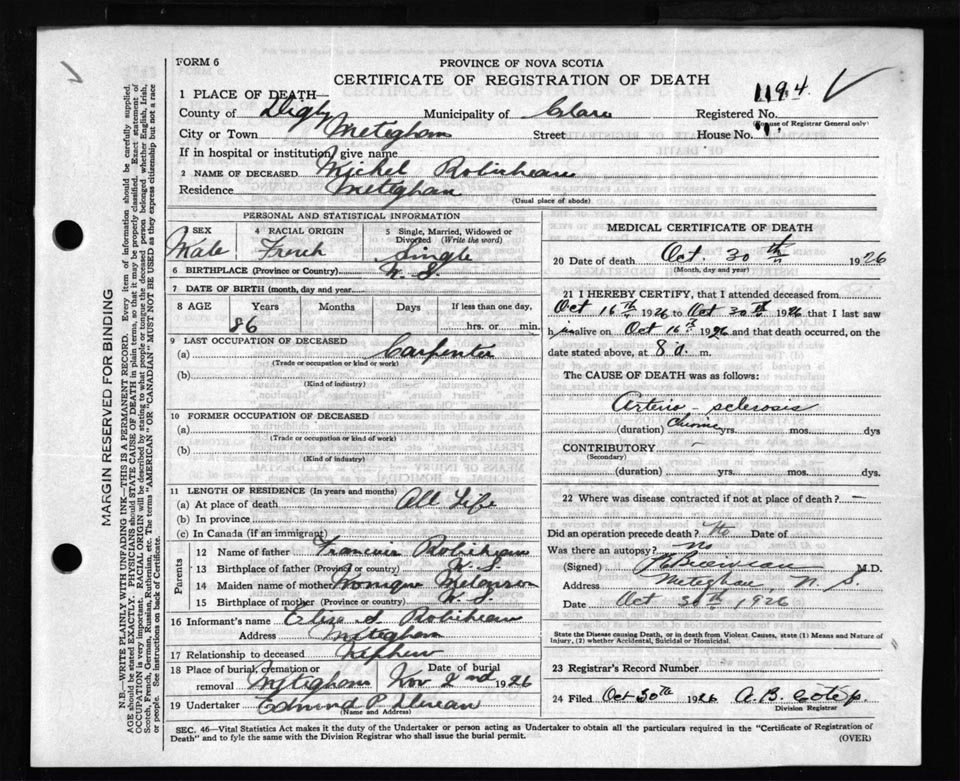 FORM 6
PROVINCE OF NOVA SCOTIA
CERTIFICATE OF REGISTRATION OF DEATH
1194
1 PLACE OF DEATH—
County of Digby Municipality of Clare Registered No.
(For use of Registrar General only)
City or Town Meteghan Street House No.
If in hospital or institution, give name
2 NAME OF DECEASED Michel Robicheau
Residence Meteghan
(Usual place of abode)
PERSONAL AND STATISTICAL INFORMATION
3 SEX 4 RACIAL ORIGIN 5 Single, Married, Widowed or Divorced (Write the word)
Male French Single
6 BIRTHPLACE (Province or Country) N. S.
7 DATE OF BIRTH (month, day and year)
8 AGE Years Months Days If less than one day,
86 hrs. or min.
9 LAST OCCUPATION OF DECEASED
(a) Carpenter
(Trade or occupation or kind of work)
(b)
(Kind of industry)
10 FORMER OCCUPATION OF DECEASED
(a)
(Trade or occupation and kind of work)
(b)
(Kind of industry)
11 LENGTH OF RESIDENCE (In years and months)
(a) At place of death All Life
(b) In province
(c) In Canada (if an immigrant)
Parents
12 Name of father Robicheau
13 Birthplace of father (Province or country) N. S.
14 Maiden name of mother Monique Melanson
15 Birthplace of mother (Province or country) N. S.
16 Informant's name Robicheau
Address Meteghan
17 Relationship to deceased Nephew
18 Place of burial, cremation or removal Meteghan Date of burial Nov 2nd 1926
19 Undertaker Edmund P.
(Name and Address)
MEDICAL CERTIFICATE OF DEATH
20 Date of death Oct. 30th 1926
(Month, day and year)
21 I HEREBY CERTIFY, that I attended deceased from
Oct 16th 1926 to Oct 30th 1926 that I last saw
him alive on Oct 16th 1926 and that death occurred, on the
date stated above, at 8 a. m.
The CAUSE OF DEATH was as follows:
Arterio-sclerosis
(duration) Chronic yrs. mos. dys
CONTRIBUTORY —
(Secondary)
(duration) yrs. mos. dys.
22 Where was disease contracted if not at place of death? —
Did an operation precede death? No Date of
Was there an autopsy? No
(Signed) M.D.
Address Meteghan N. S.
Date Oct 30th 1926
State the Disease causing Death, or in death from Violent Causes, state (1) Means and Nature of
Injury, (2) whether Accidental, Suicidal or Homicidal.
23 Registrar's Record Number
24 Filed Oct 30th 1926 A. B.
Division Registrar
SEC. 46—Vital Statistics Act makes it the duty of the Undertaker or person acting as Undertaker to obtain all the particulars required in the "Certificate of Registration of
Death" and to fyle the same with the Division Registrar who shall issue the burial permit. (OVER)
MARGIN RESERVED FOR BINDING
N.B.—WRITE PLAINLY WITH UNFADING INK—THIS IS A PERMANENT RECORD. Every item of information should be carefully supplied.
AGE should be stated EXACTLY. PHYSICIANS should STATE CAUSE OF DEATH in plain terms, so that it may be properly classified. Exact statement of
OCCUPATION is very important. RACIAL ORIGIN will be described by stating to what people or tongue the deceased person belonged whether English, Irish,
Scotch, French, German, Russian, Ruthenian, etc. The terms "AMERICAN" or "CANADIAN" MUST NOT BE USED as they express citizenship but not a race
or people. See instructions on back of Certificate.